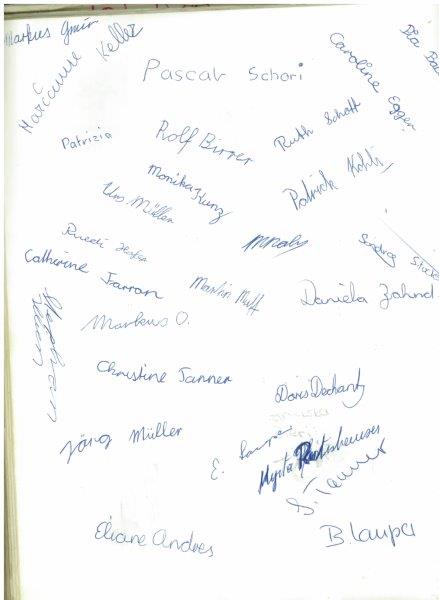 Markus Gmür
Marianne Keller
Pia
Pascal Schori
Caroline Egger
Patrizia
Rolf Birrer
Ruth Schott
Monika Kunz
Patrick Kohli
Urs Müller
Ruedi
Sandra
Catherine Farron
Martin Muff
Daniela Zahnd
Markus O.
Stephan
Christine Tanner
Doris Dechant
Jörg Müller
E.
Myrta
S. Tanner
Eliane Andres
B. Lauper